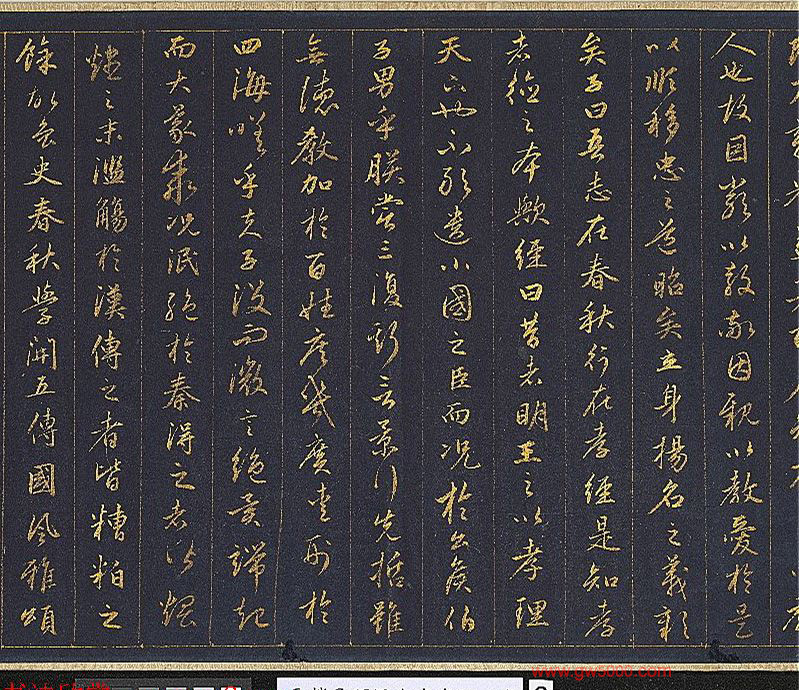 人也故因嚴以教敬因親以教愛於是
以順移忠之道昭矣立身揚名之義彰
矣子曰吾志在春秋行在孝經是知孝
者德之本歟經曰昔者明王之以孝理
天下也不敢遺小國之臣而況於公侯伯
子男乎朕嘗三復斯言景行先哲雖
無德教加於百姓庶幾廣愛形於
四海嗟乎夫子沒而微言絕異端起
而大義乖況泯絕於秦得之者皆煨
燼之末濫觴於漢傳之者皆糟粕之
餘故魯史春秋學開五傳國風雅頌
www.gw5000.com